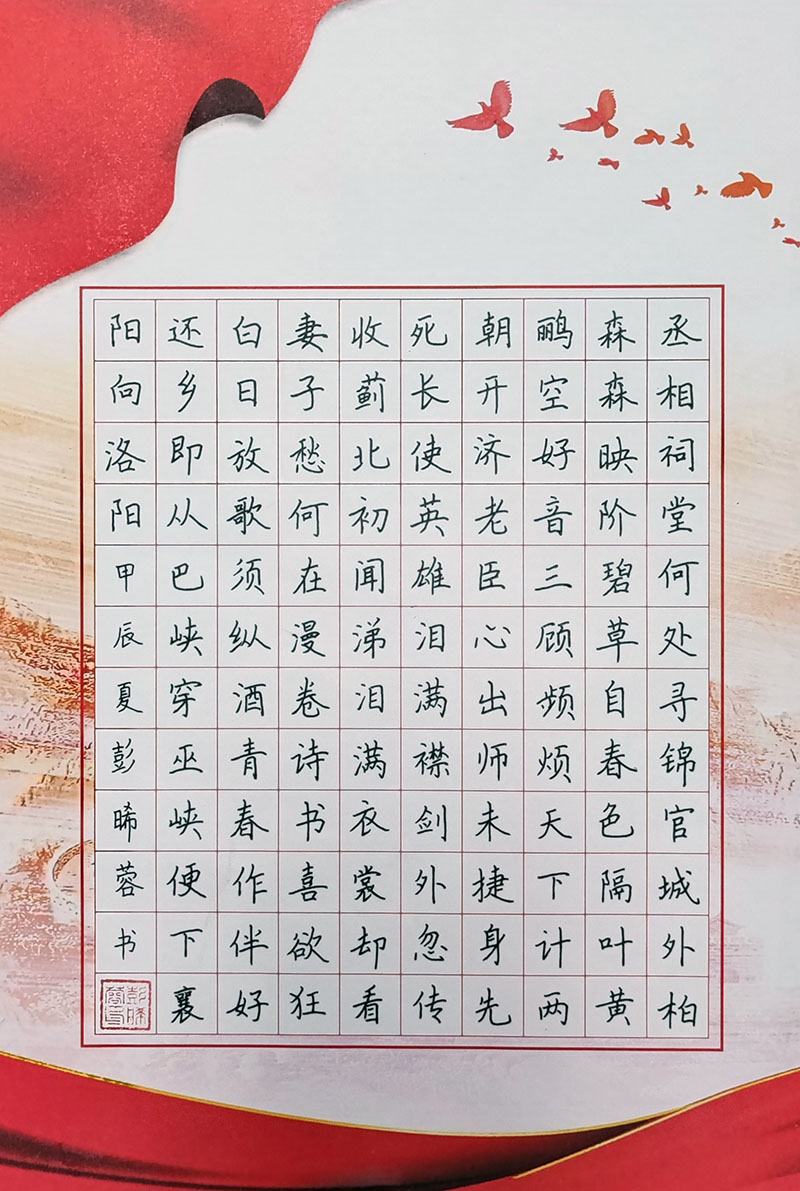 丞相祠堂何处寻锦官城外柏
森森映阶碧草自春色隔叶黄
鹂空好音三顾频烦天下计两
朝开济老臣心出师未捷身先
死长使英雄泪满襟剑外忽传
收蓟北初闻涕泪满衣裳却看
妻子愁何在漫卷诗书喜欲狂
白日放歌须纵酒青春作伴好
还乡即从巴峡穿巫峡便下襄
阳向洛阳甲辰夏彭晞蓉书